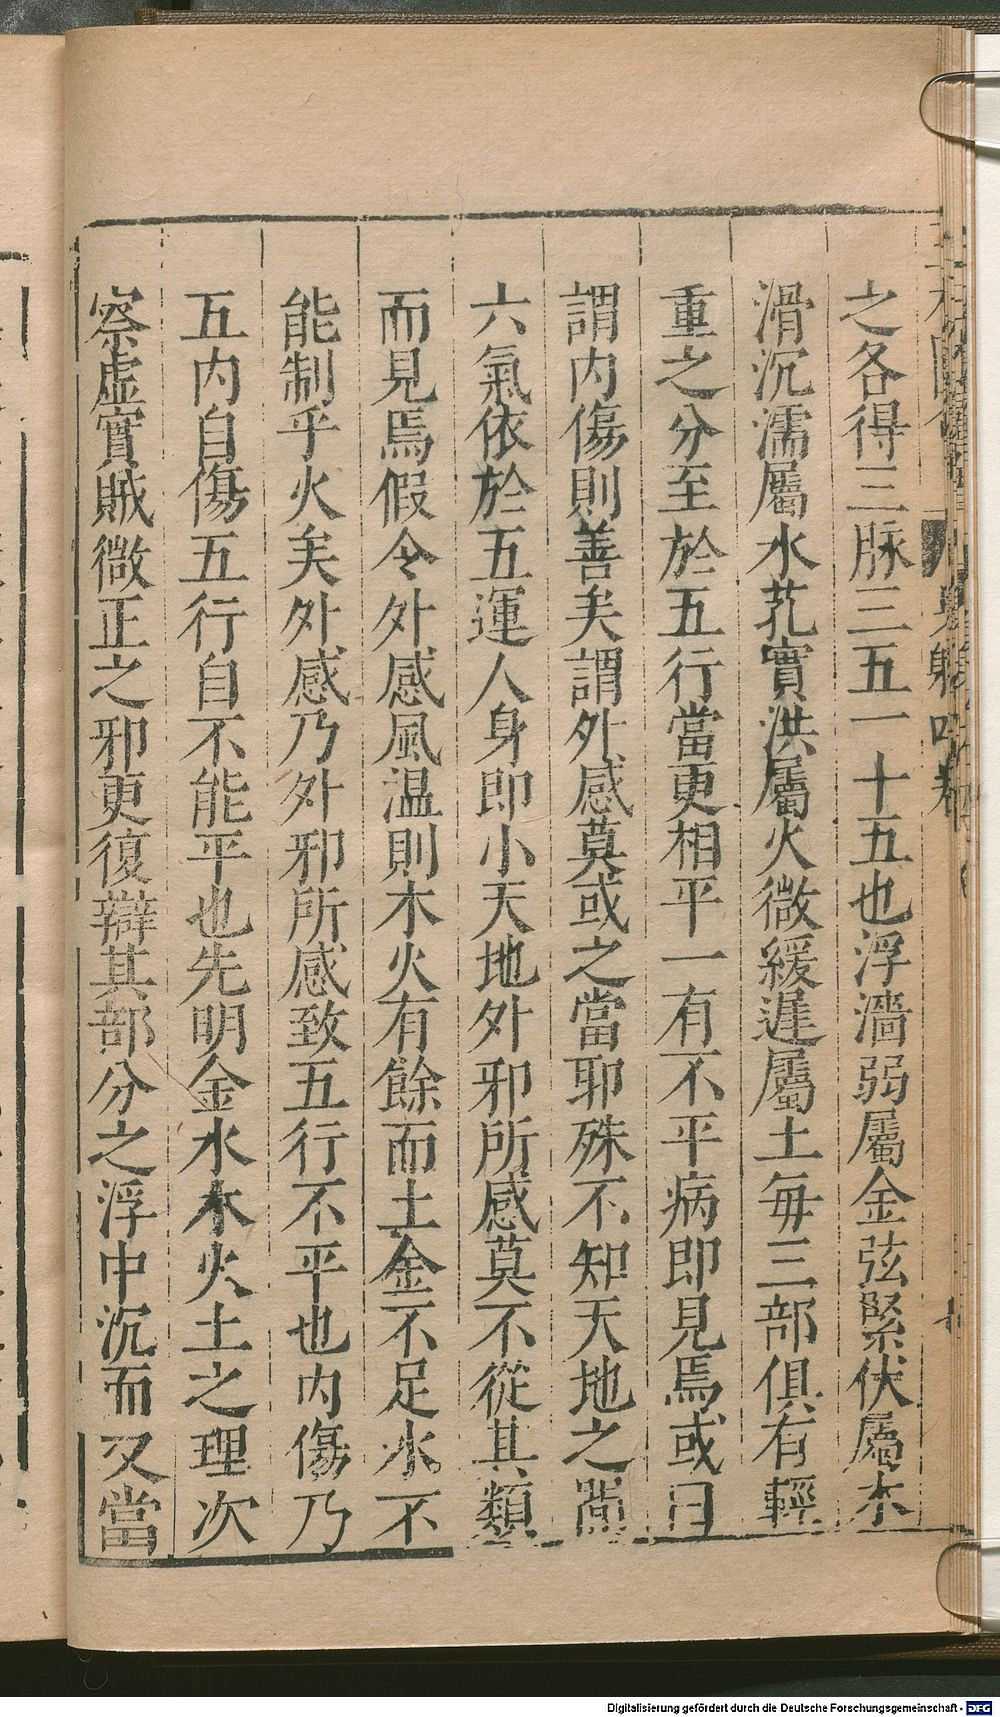 之各得三脉三五一十五也浮濇弱屬金弦緊伏屬木
滑沉濡屬水芤實洪屬火微緩遲屬土每三部俱有輕
重之分至於五行當更相平一有不平病即見焉或曰
謂内傷則善矣謂外感莫或之當耶殊不知天地之間
六氣依於五運人身即小天地外邪所感莫不從其類
而見焉假令外感風温則木火有餘而土金不足水不
能制乎火矣外感乃外邪所感致五行不平也内傷乃
五内自傷五行自不能平也先明金水木火土之理次
察虚實賊微正之邪更復辯其部分之浮中沉而又當
Digitalisierung gefördert durch die Deutsche Forschungsgemeinschaft - DFG